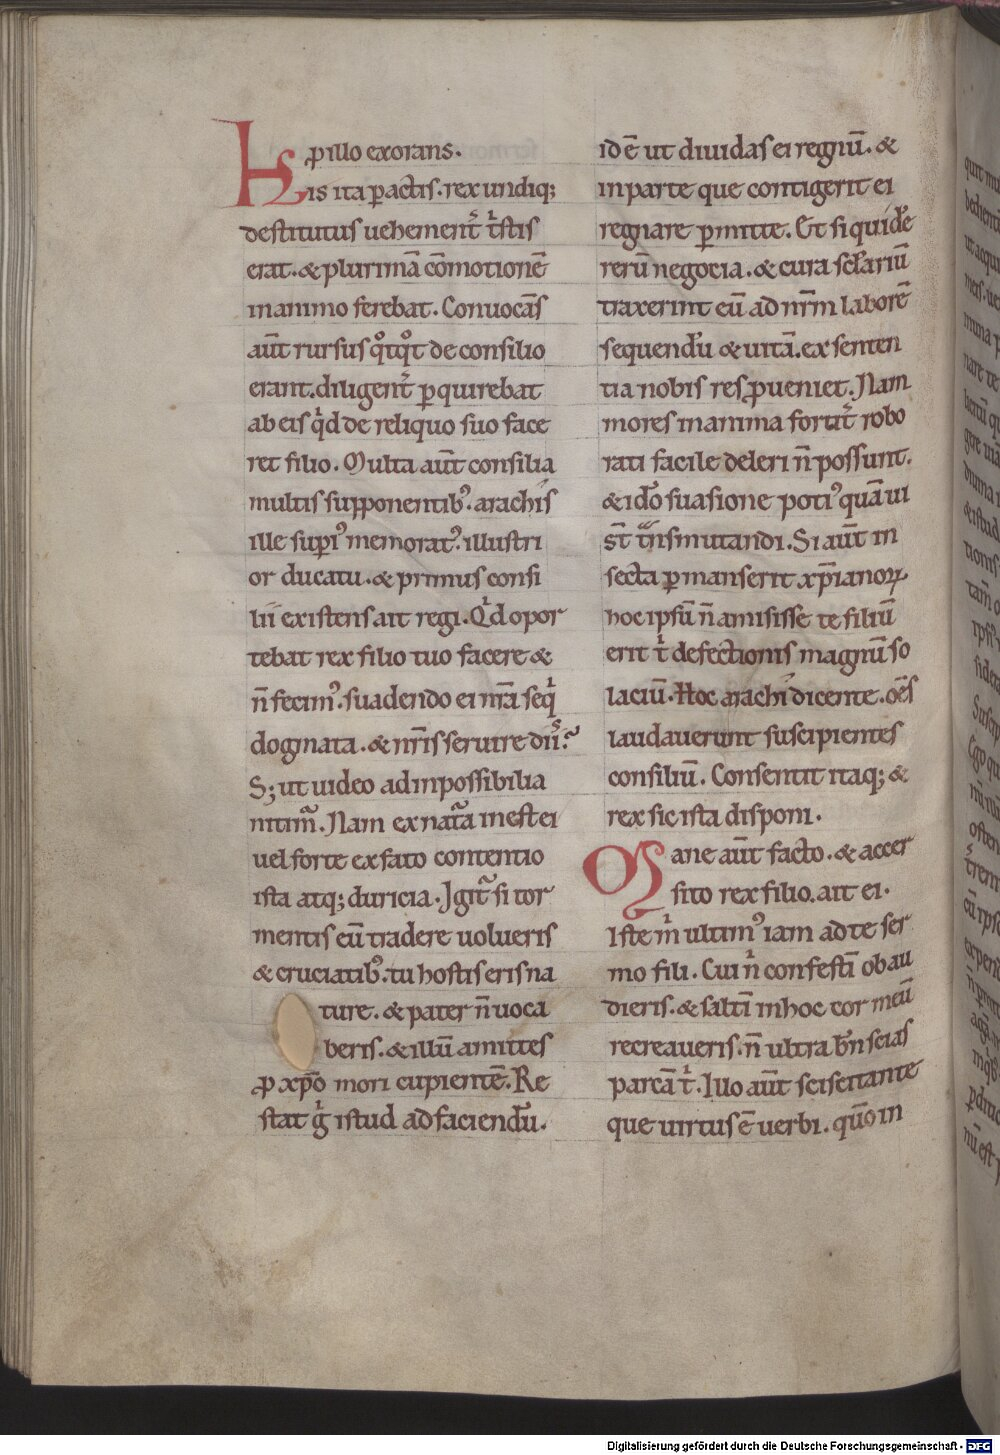 ꝓ illo exorans.
His ita ꝑactis. rex undiq;
destitutus uehementˢ tͥstis
erat. & plurimā cōmotionē
in animo ferebat. Conuocās
aūt rursus qͦtqͦt de consilio
erant. diligentˢ ꝑquirebat
ab eis qͥd de reliquo suo face
ret filio. Multa aūt consilia
multis supponentibꝰ. arachis
ille supiꝰ memoratꝰ. illustri
or ducatu. & primus consi
lii existens ait regi. Qͥd opor
tebat rex filio tuo facere &
n̄ fecimꝰ. suadendo ei nr̄a seqͥ
dogmata. & nr̄is seruire diis̄?
S; ut uideo ad inpossibilia
nitim̃. Nam ex nat̃a inest ei
uel forte ex fato contentio
ista atq; duricia. Igit̃ si tor
mentis eū tradere uolueris
& cruciatibꝰ. tu hostis eris na
ture. & pater n̄ uoca
beris. & illū amittes
ꝓ xp̄o mori cupientē. Re
stat gͥ istud ad faciendū.
id ē ut diuidas ei regnū. &
in parte que contigerit ei
regnare ꝑmitte. Et si quidē
rerū negocia. & cura sclāriū
traxerint eū ad nr̄m laborē
sequendū & uitā. ex senten
tia nobis res ꝓueniet. Nam
mores in anima fortit̾ robo
rati facile deleri n̄ possunt.
& idō suasione potiꝰ quā ui
st̄ tᵃnsmutandi. Si aūt in
secta ꝑmanserit xp̄ianoꝝ
hoc ipsū n̄ amisisse te filiū
erit tͥ defectionis magnū so
laciū. Hoc arachi dicente. oēs
laudauerunt suscipientes
consiliū. Consentit itaq; &
rex sic ista disponi.
Mane aūt facto. & accer
sito rex filio. ait ei.
Iste mͥ ultimꝰ iam ad te ser
mo fili. Cui nͥ confestī obau
dieris. & saltī in hoc cor meū
recreaueris. n̄ ultra bn̄ scias
parcā tͥ. Illo aūt sciscitante
que uirtus ē uerbi. quō in